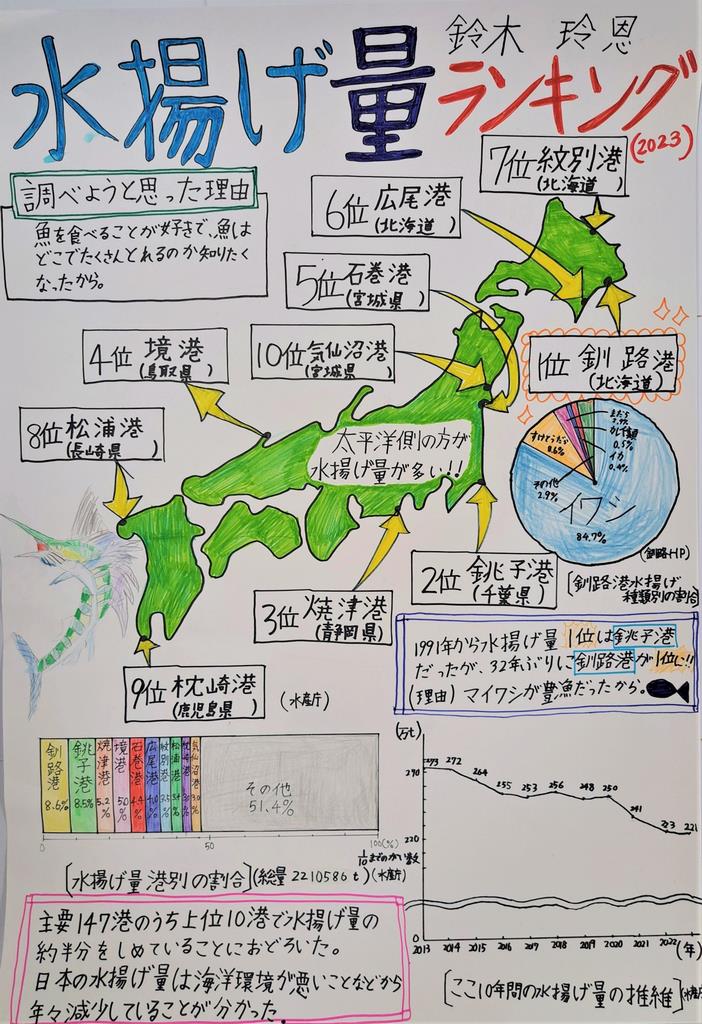 鈴木 玲恩
水揚げ量ランキング
(2023)
調べようと思った理由
魚を食べることが好きで、魚は
どこでたくさんとれるのか知りたく
なったから。
7位 紋別港
(北海道)
6位 広尾港
(北海道)
5位 石巻港
(宮城県)
4位 境港
(鳥取県)
10位 気仙沼港
(宮城県)
1位 釧路港
(北海道)
8位 松浦港
(長崎県)
太平洋側の方が
水揚げ量が多い!!
すけとうだら
8.6%
カレイ類
0.5%
イカ
0.4%
その他
2.9%
イワシ
84.7%
(釧路HP)
[釧路港水揚げ
種類別の割合]
2位 銚子港
(千葉県)
3位 焼津港
(静岡県)
9位 枕崎港
(鹿児島県)
(水産庁)
1991年から水揚げ量 1位は銚子港
だったが、32年ぶりに釧路港が1位に!!
(理由) マイワシが豊漁だったから。
釧路港 8.6%
銚子港 8.5%
焼津港 5.2%
境港 5.0%
石巻港 4.4%
広尾港 4.0%
紋別港 3.5%
松浦港 3.4%
枕崎港
気仙沼港 3.0%
その他
51.4%
0 50 100(%)
1/10までのがい数
[水揚げ量港別の割合](総量 2210586t)(水産庁)
主要147港のうち上位10港で水揚げ量の
約半分をしめていることにおどろいた。
日本の水揚げ量は海洋環境が悪いことなどから
年々減少していることが分かった。
(万t)
293 272 264 255 253 256 248 250 241 223 221
270
220
0
2013 2014 2015 2016 2017 2018 2019 2020 2021 2022 (年)
[ここ10年間の水揚げ量の推維](水産庁)